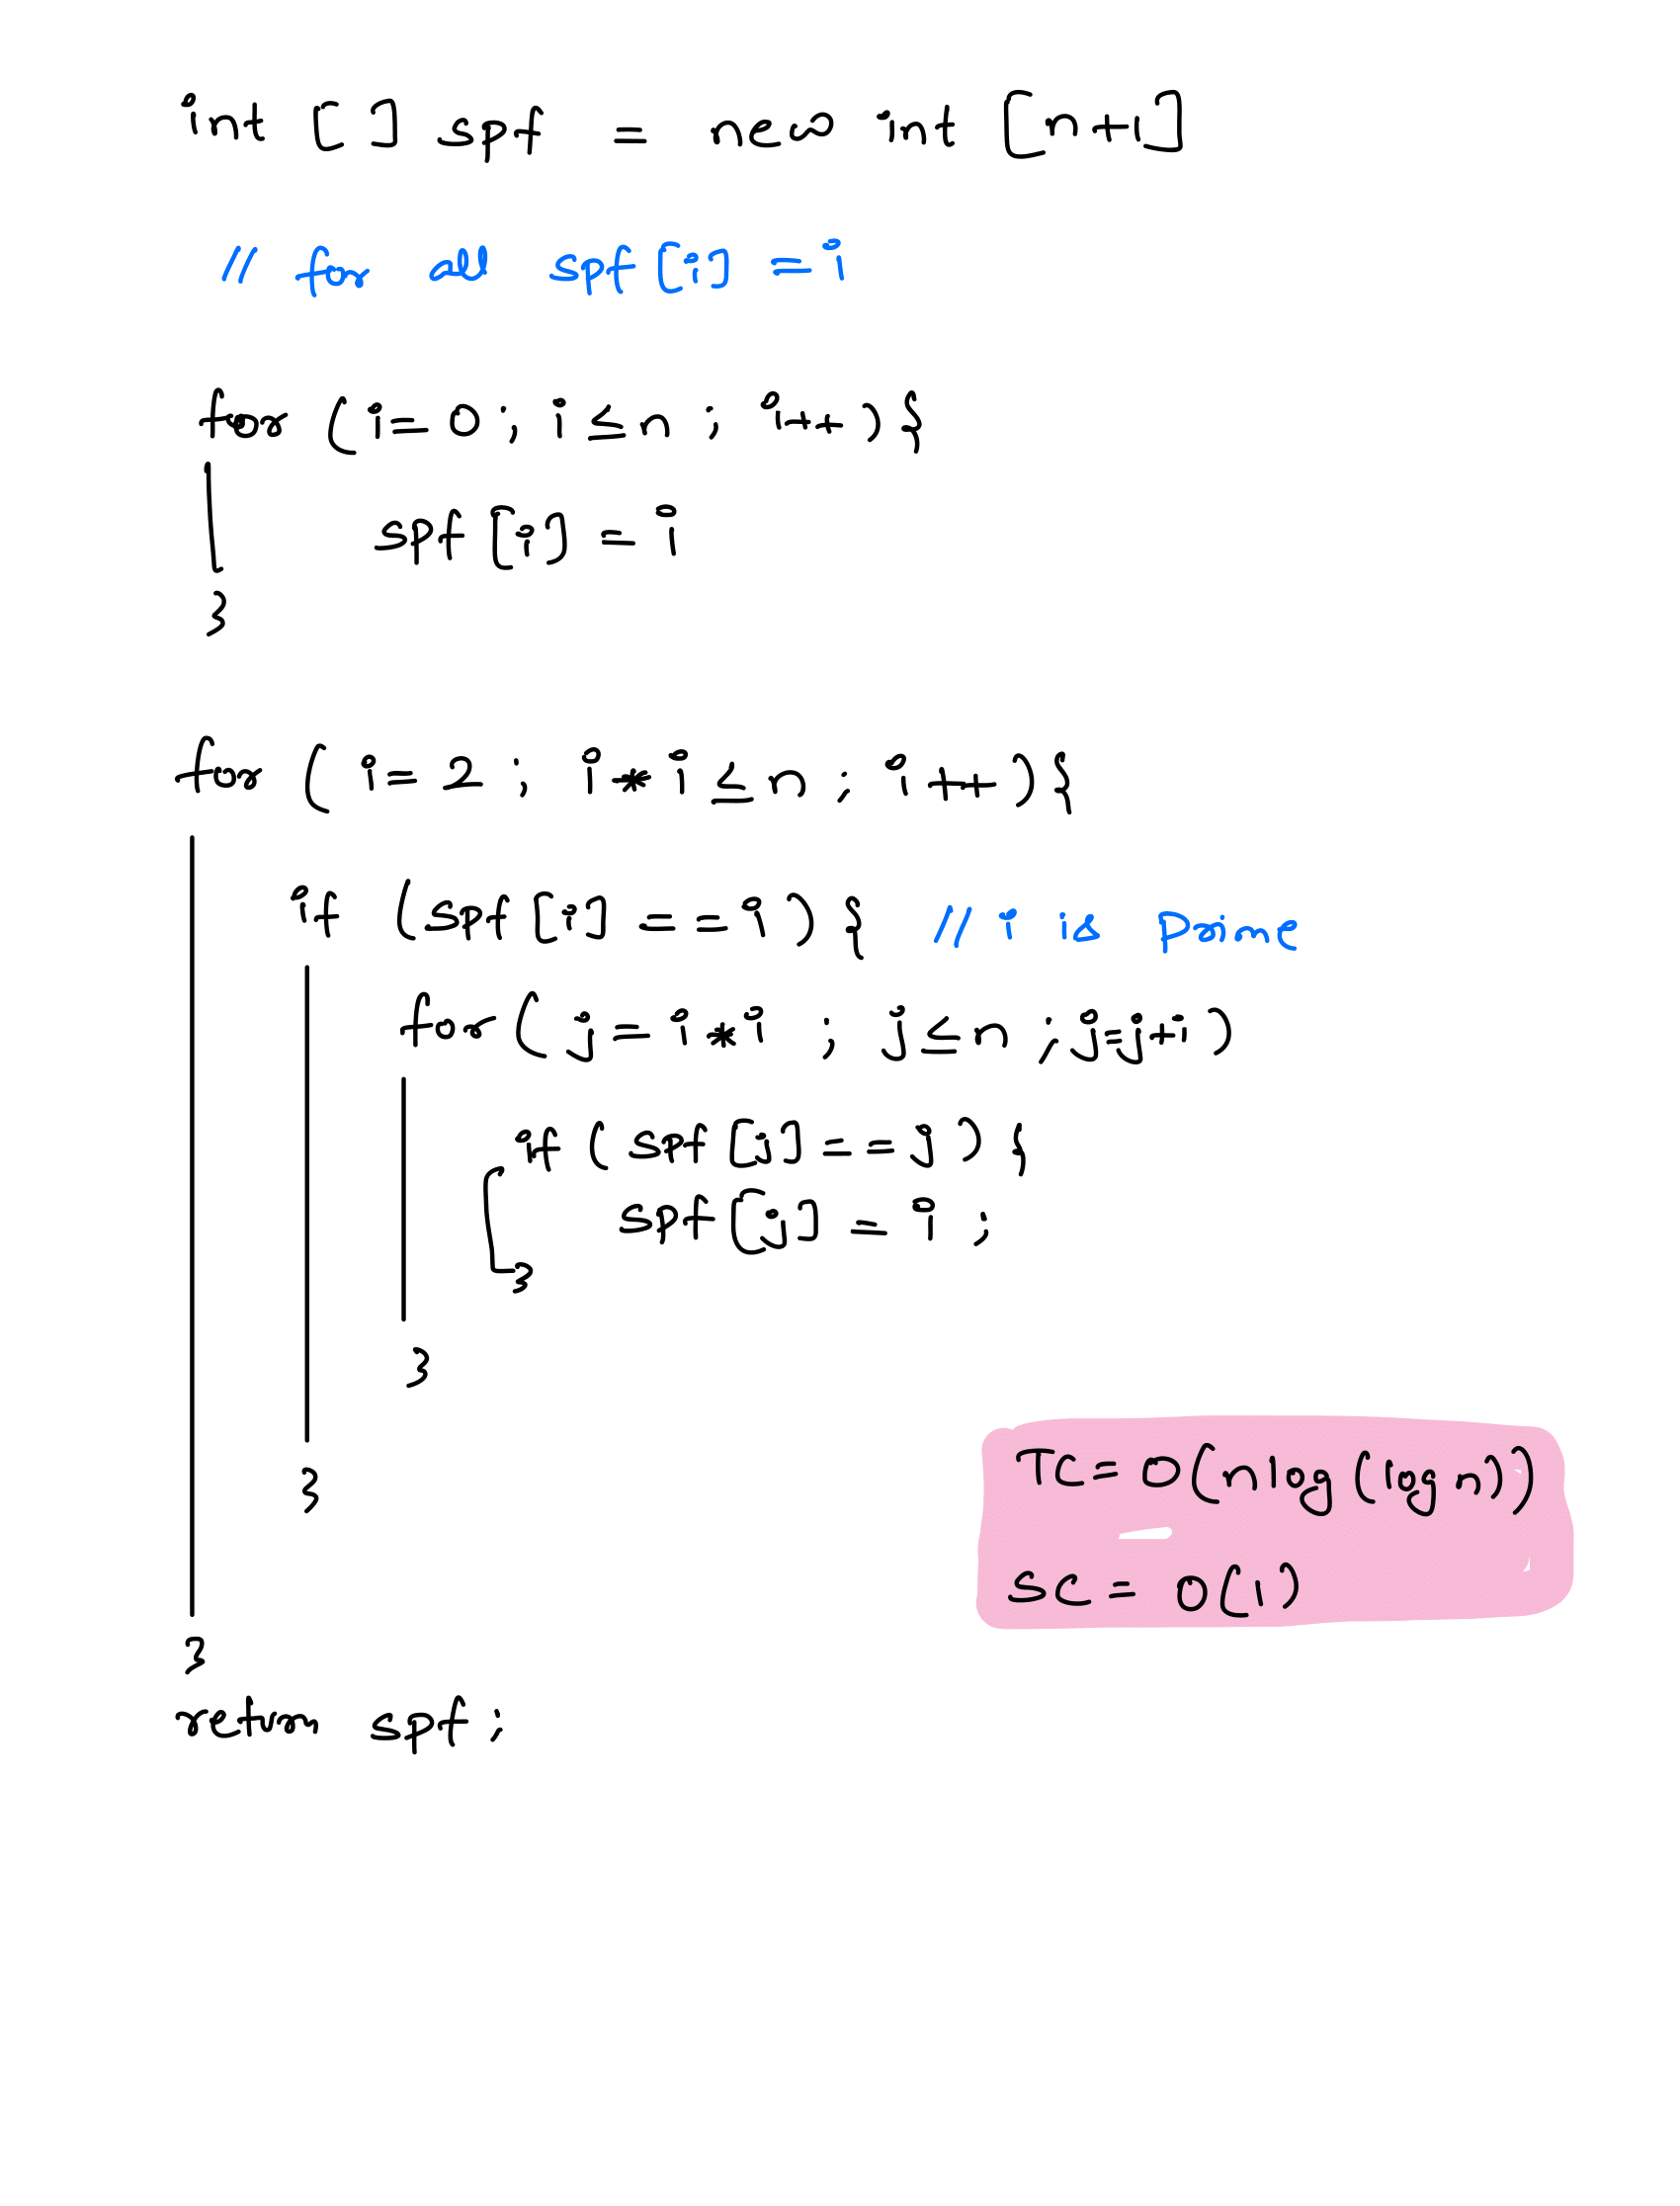 int [ ] spf = new int [n+1]
// for all spf[i] = i
for (i= 0; i ≤ n ; i++ ){
spf [i] = i
}
for ( i= 2 ; i * i ≤ n ; i ++ ){
if (spf [i] == i ) { // i is Prime
for( j= i * i ; j ≤ n ; j=j+i )
if ( spf [j] == j ) {
spf [j] = i ;
}
}
}
TC= O(nlog(log n))
SC = O(1)
}
return spf ;